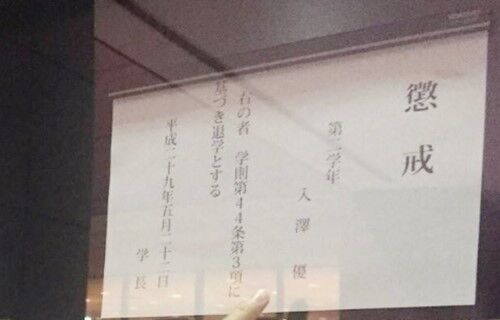 懲戒
第二学年
入澤優
右の者 学則第44条第3項に
基づき退学とする
平成二十九年五月二十二日
学長